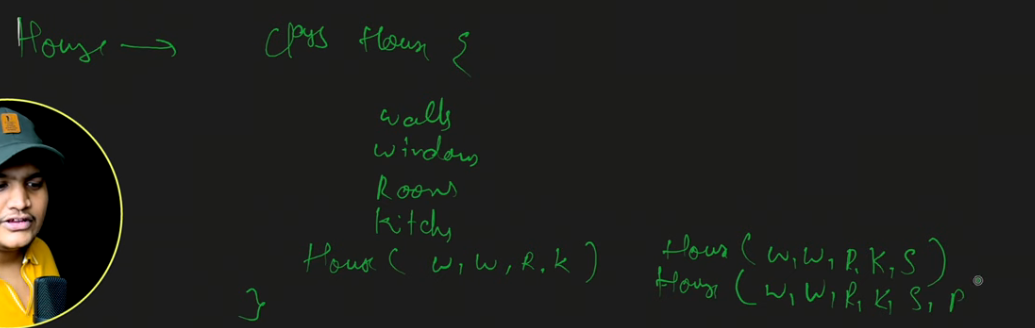 House → Class House {
walls
windows
Rooms
kitchs
House ( W, W, R, K )
House ( W, W, R, K, S )
House ( W, W, R, K, S, P
}